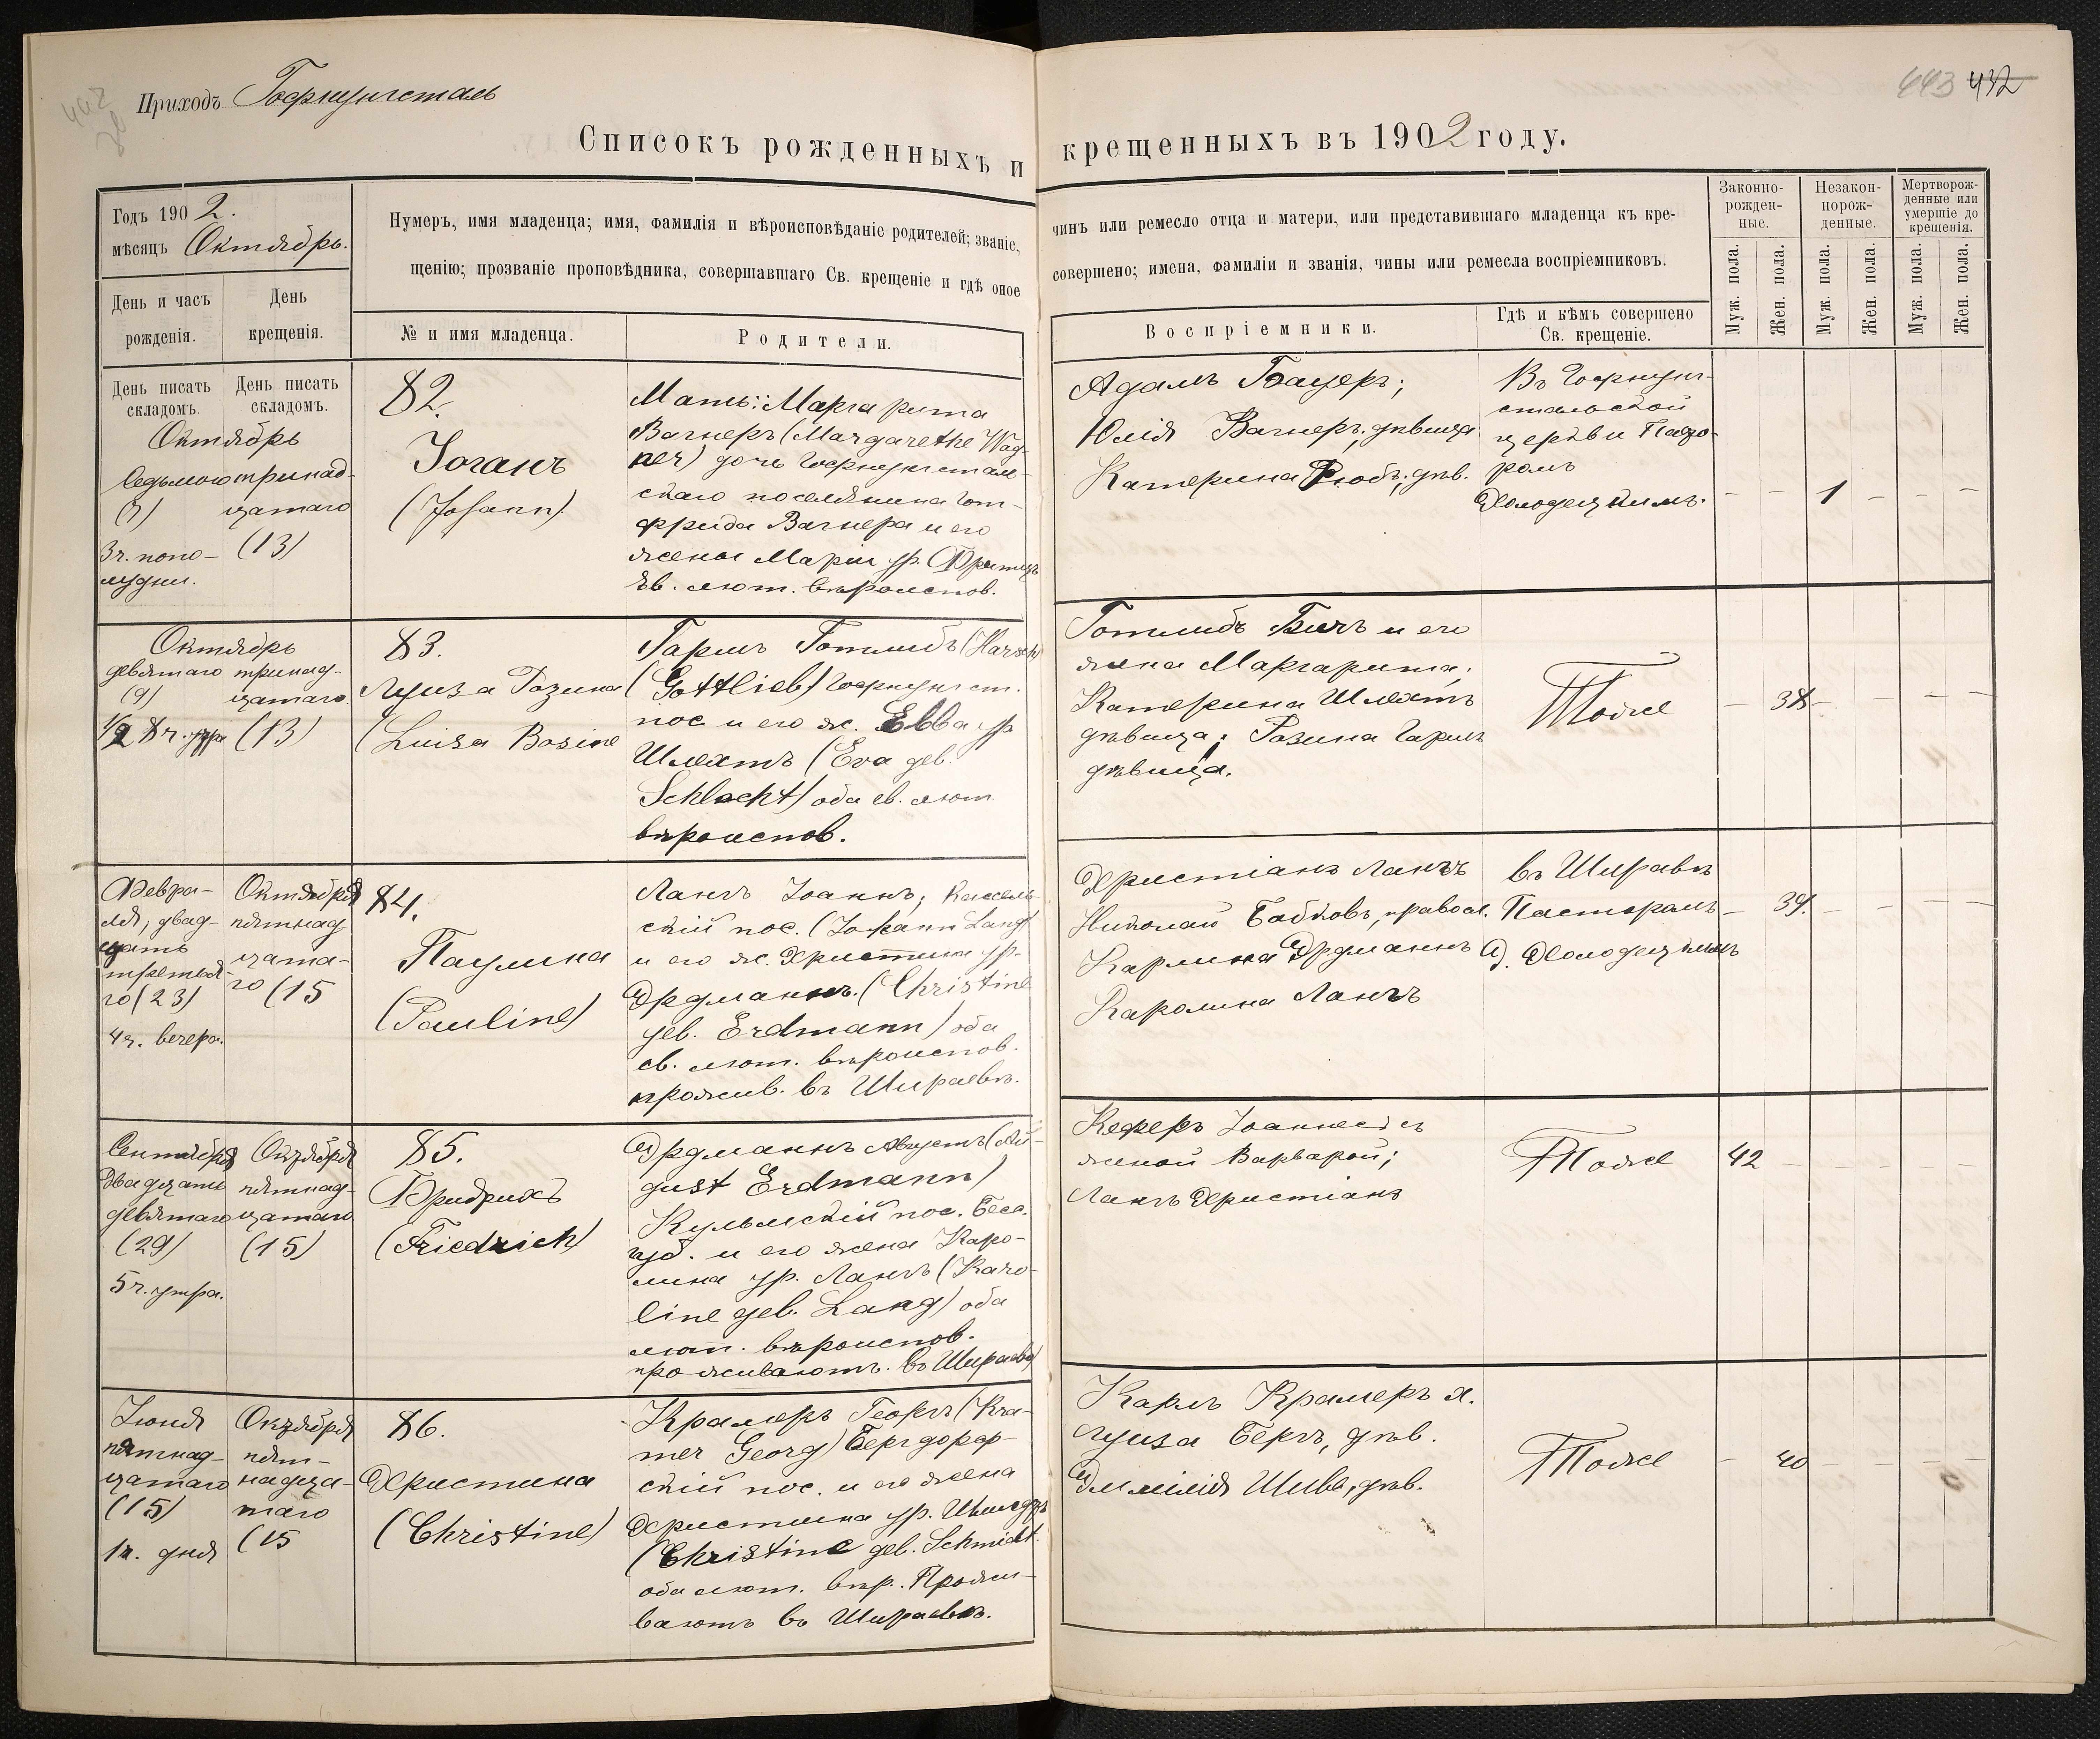 Приходъ Гофнунгсталь
443 432
Списокъ рожденныхъ и крещенныхъ въ 1902 году.
Годъ 1902.
мѣсяцъ Октябрь.
День и часъ рожденія.
День крещенія.
Нумеръ, имя младенца; имя, фамилія и вѣроисповѣданіе родителей; званіе, чинъ или ремесло отца и матери, или представившаго младенца къ кре-
щенію; прозваніе проповѣдника, совершавшаго Св. крещеніе и гдѣ оное совершено; имена, фамиліи и званія, чины или ремесла воспріемниковъ.
№ и имя младенца.
Родители.
Воспріемники.
Гдѣ и кѣмъ совершено
Св. крещеніе.
Законно-
рожден-
ные.
Незакон-
норож-
денные.
Мертворож-
денные или
умершіе до
крещенія.
Муж. пола.
Жен. пола.
Муж. пола.
Жен. пола.
Муж. пола.
Жен. пола.
День писать
складомъ.
День писать
складомъ.
Октябрь
Седьмого
(7)
3 ч. попо-
лудни.
тринад-
цатаго
(13)
82.
Іоганъ
(Johann)
Мать: Маргарита
Вагнеръ (Margarethe Wag-
ner) дочь Гофнунгсталь-
скаго поселянина Гот-
фрида Вагнера и его
жены Маріи ур. Фритцъ
ев. лют. вѣроиспов.
Адамъ Бауеръ;
Юлія Вагнеръ, дѣвица
Катерина Рюбъ, дѣв.
Въ Гофнунг-
стальской
церкви Пасто-
ромъ
Холодецкимъ.
– – 1 – – –
Октябрь
девятаго
(9)
1/2 8 ч. утра
тринад-
цатаго
(13)
83.
Луиза Розина
(Luisa Rosine
Гаршъ Готлибъ (Harsch
Gottlieb) Гофнунгст.
пос. и его ж. Ева ур.
Шлехтъ (Eva geb.
Schlecht) оба ев. лют.
вѣроиспов.
Готлибъ Бичъ и его
жена Маргарита;
Катерина Шлехтъ
дѣвица; Розина Гаршъ
дѣвица.
Тоже
– 38 – – – –
Февра-
ля, двад-
цать
третья-
го (23)
4 ч. вечера.
Октября
пятнад
цата-
го (15
84.
Паулина
(Pauline)
Лангъ Іоаннъ, Кассель-
скій пос. (Johann Lang)
и его ж. Христина ур.
Эрдманнъ. (Christine
geb. Erdmann) оба
ев. лют. вѣроиспов.
прожив. въ Шираевѣ.
Христіанъ Лангъ
Николай Бабковъ, правосл.
Карлина Эрдманнъ
Каролина Лангъ
въ Шираевѣ
Пасторомъ
Э. Холодецкимъ
– 39. – – – –
Сентября
Двадцать
девятаго
(29)
5 ч. утра.
Октября
пятнад-
цатаго
(15)
85.
Фридрихъ
(Friedrich)
Эрдманнъ Августъ (Au-
gust Erdmann)
Кульмскій пос. Бесс.
губ. и его жена Каро-
лина ур. Лангъ (Karo-
line geb. Lang) оба
лют. вѣроиспов.
проживаютъ въ Шираевѣ
Кеферъ Іоаннесъ съ
женой Варварой;
Лангъ Христіанъ
Тоже
42 – – – – –
Іюня
пятнад-
цатаго
(15)
1 ч. дня
Октября
пят-
надца-
таго
(15
86.
Христина
(Christine)
Крамеръ Георгъ (Kra-
mer Georg) Бергдорф-
скій пос. и его жена
Христина ур. Шмидтъ
(Christine geb. Schmidt.
оба лют. вѣр. Прожи-
ваютъ въ Шираевѣ.
Карлъ Крамеръ х.
Луиза Бергъ, дѣв.
Эмилія Шиве, дѣв.
Тоже
– 40 – – – –